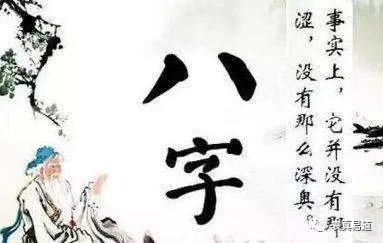 八字
事实上，它并没有那
涩，没有那么深奥
真易道